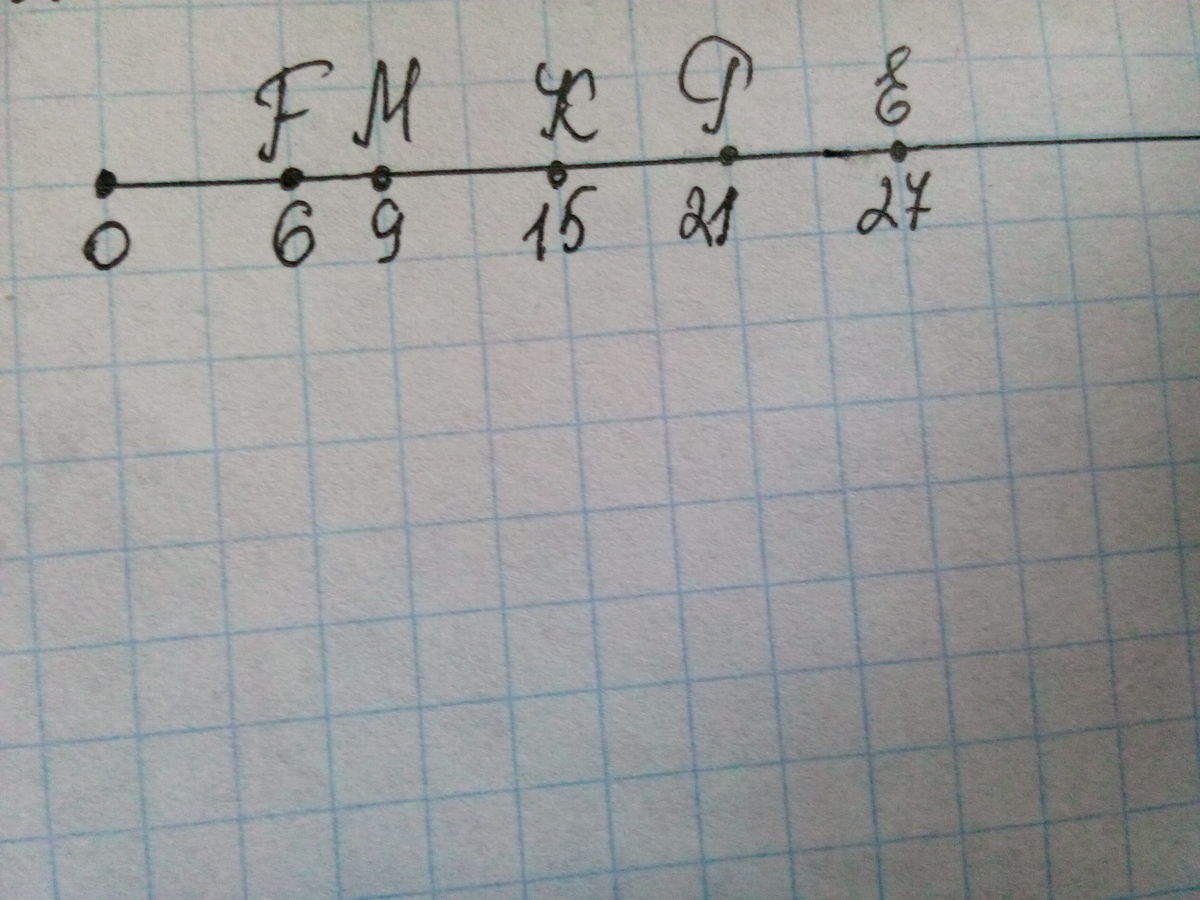 F M K P E
0 6 9 15 21 27